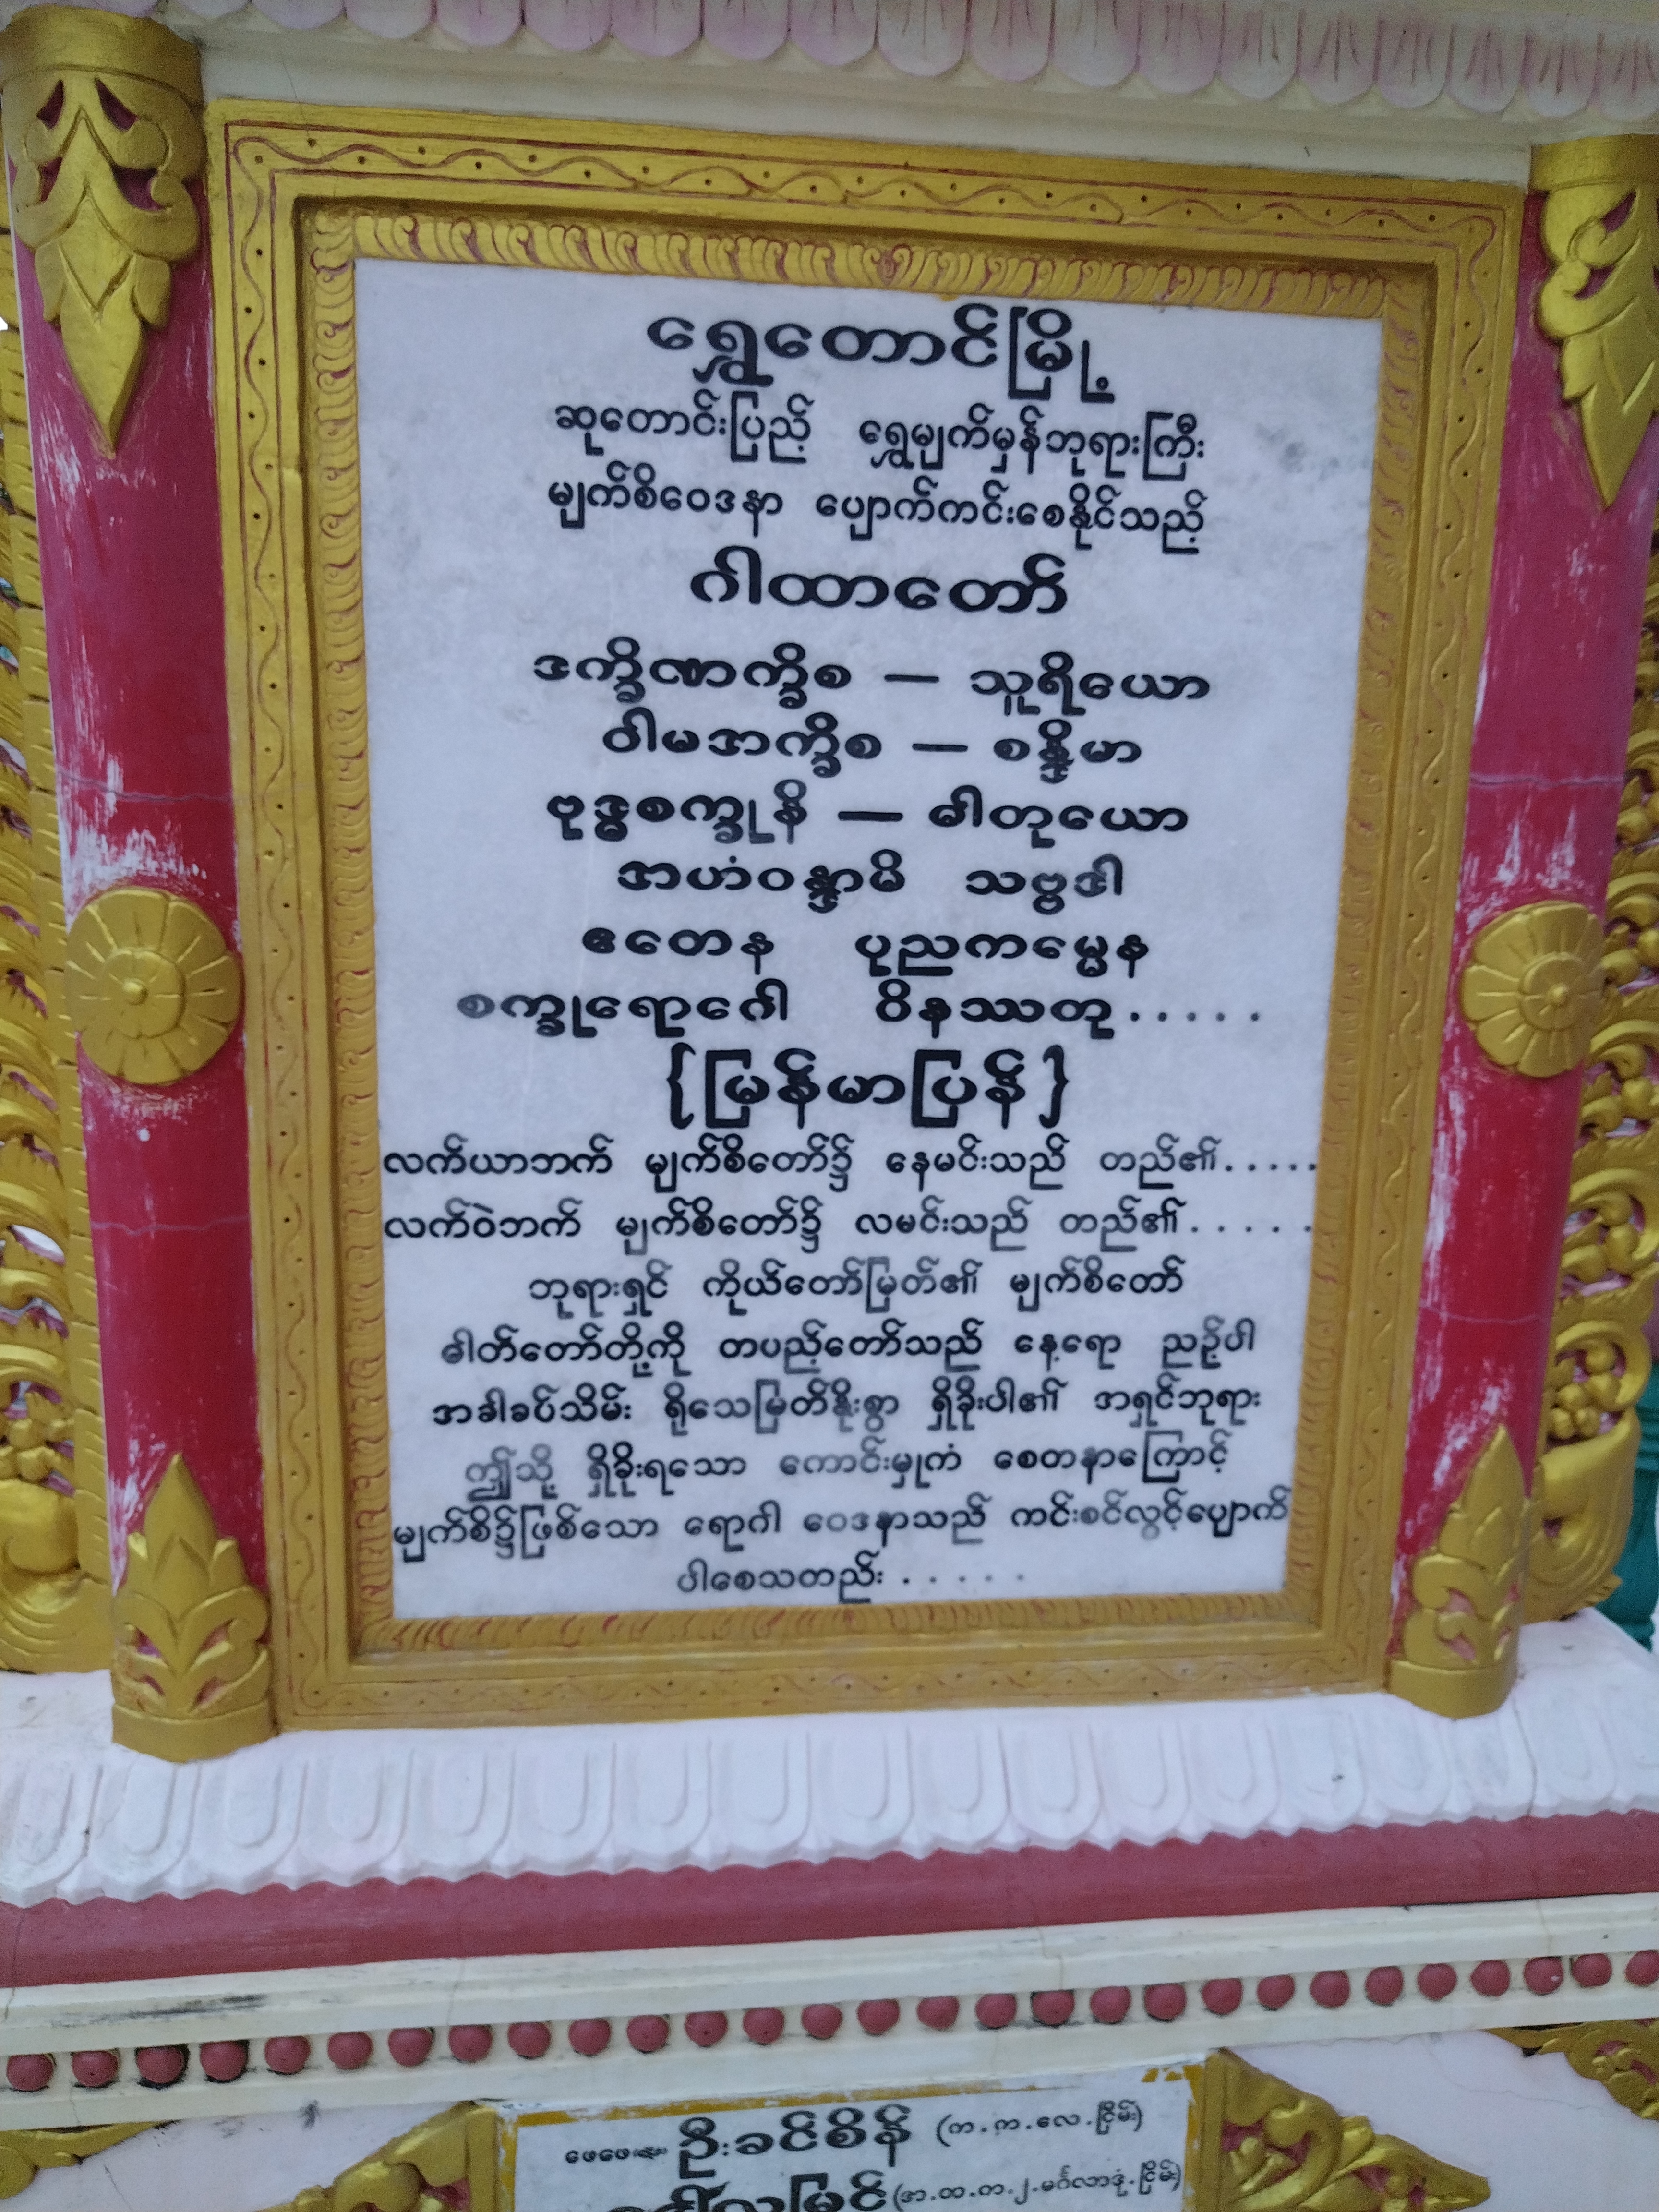 ရွှေတောင်မြို့
ဆုတောင်းပြည့် ရွှေမျက်မှန်ဘုရားကြီး
မျက်စိဝေဒနာ ပျောက်ကင်းစေနိုင်သည့်
ဂါထာတော်
ဒက္ခိဏက္ခိစ – သူရိယော
ဝါမအက္ခိစ – စန္ဒိမာ
ဗုဒ္ဓစက္ခုနိ – ဓါတုယော
အဟံဝန္ဒာမိ သဗ္ဗဒါ
ဧတေန ပုညကမ္မေန
စက္ခုရောဂေါ ဝိနဿတု.....
{မြန်မာပြန်}
လက်ယာဘက် မျက်စိတော်၌ နေမင်းသည် တည်၏.....
လက်ဝဲဘက် မျက်စိတော်၌ လမင်းသည် တည်၏.....
ဘုရားရှင် ကိုယ်တော်မြတ်၏ မျက်စိတော်
ဓါတ်တော်တို့ကို တပည့်တော်သည် နေ့ရော ညဉ့်ပါ
အခါခပ်သိမ်း ရိုသေမြတ်နိုးစွာ ရှိခိုးပါ၏ အရှင်ဘုရား
ဤသို့ ရှိခိုးရသော ကောင်းမှုကံ စေတနာကြောင့်
မျက်စိ၌ဖြစ်သော ရောဂါ ဝေဒနာသည် ကင်းစင်လွင့်ပျောက်
ပါစေသတည်း.....
ဦးခင်စိန် (က.က.လေ.ငြိမ်း)
(အ.ထ.က.၂.မင်္ဂလာဒုံ.ငြိမ်း)